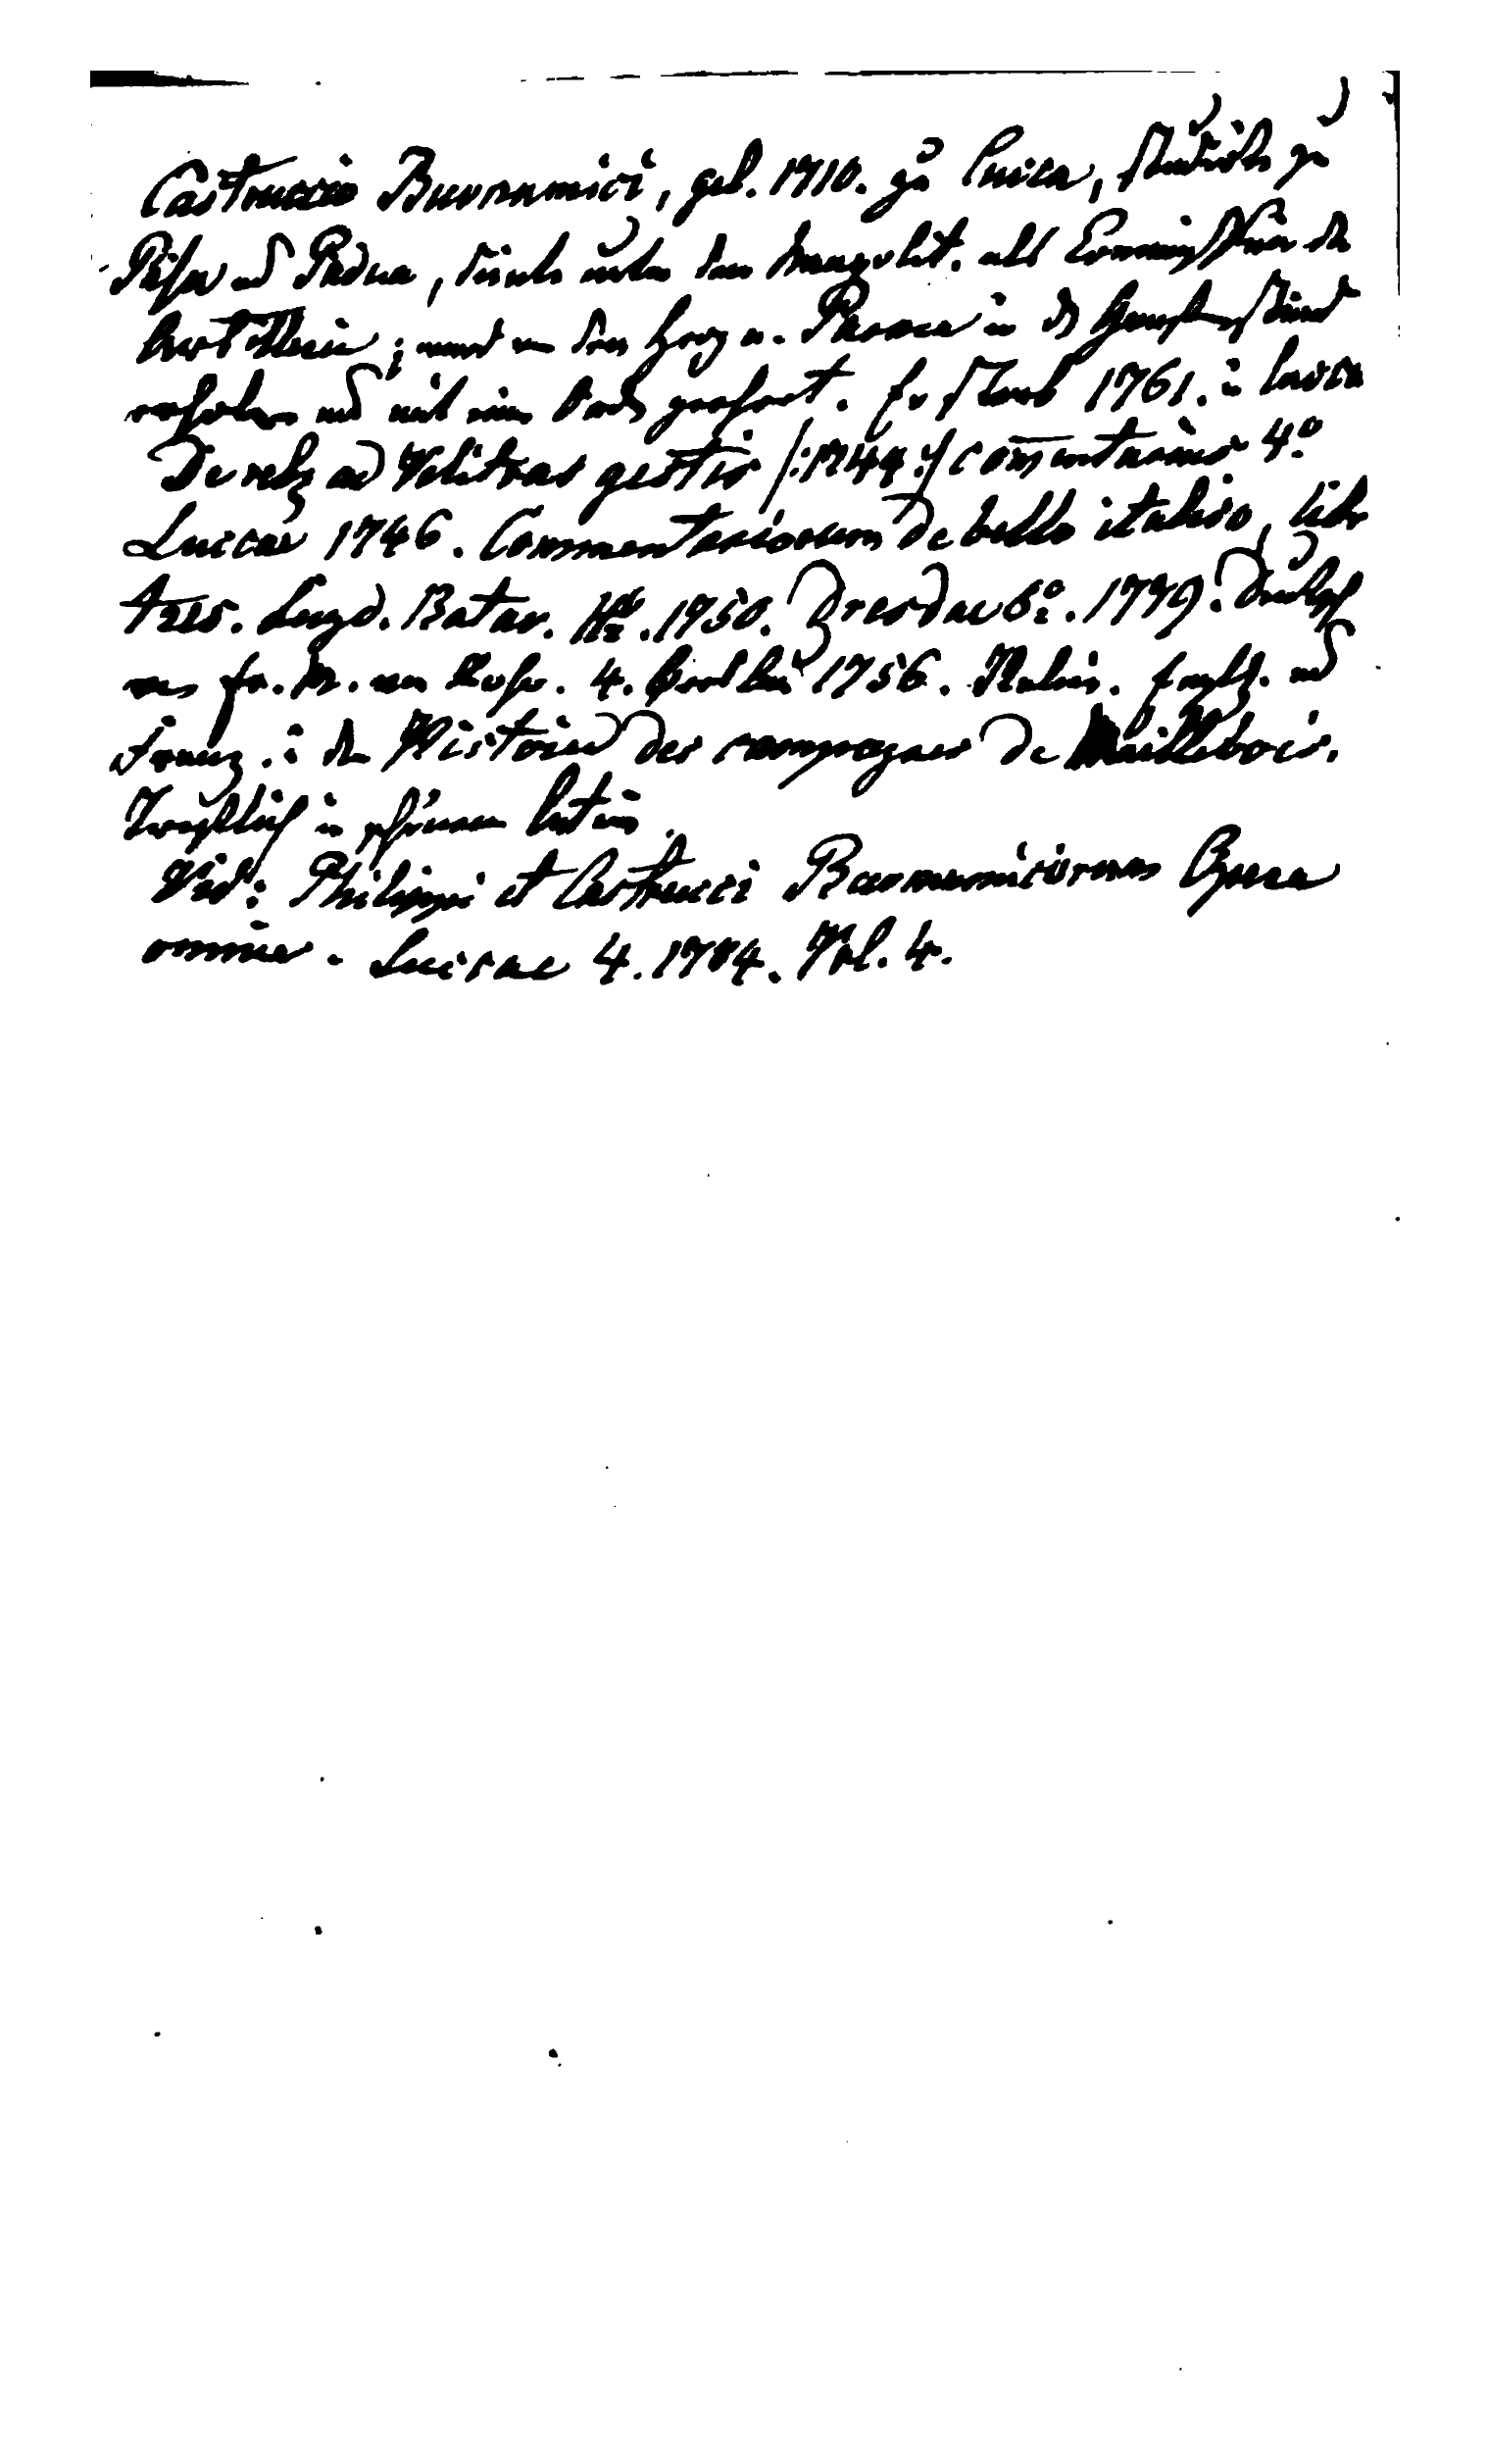 Castruccio Buonamici, geb. 1710. zu Lucca, studirte zu
Pisa und Padua, diente unter den Neapolit. als Commissär der
Artillerie; ward von dem Herzog v. Parma in den Grafenstand
erhoben und mit einer Pension. Er starb 1761. in Lucca
De rebus ad Velitras gestis /:1744:/ commentarius 4º
Luccae 1746. Commentariorum de bello italico, libr
tres. Lugd. Batav. 1750. Dresdae 8º. 1779. Deutsch
von Fr. M. von Rohr. 4. 1756. Italien. Englh. und
Franz. in der Histoire des campagnes de Maillebois.
Trefflich in schönem Latein.
Vid: Philippi et Castrucci Buonamiciorum Opera
omnia. Luccae 4. 1784. Vol. 4.